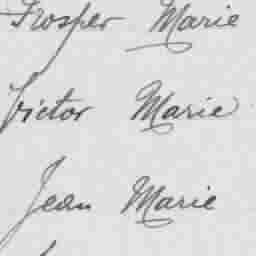 Prosper Marie
Victor Marie
Jean Marie